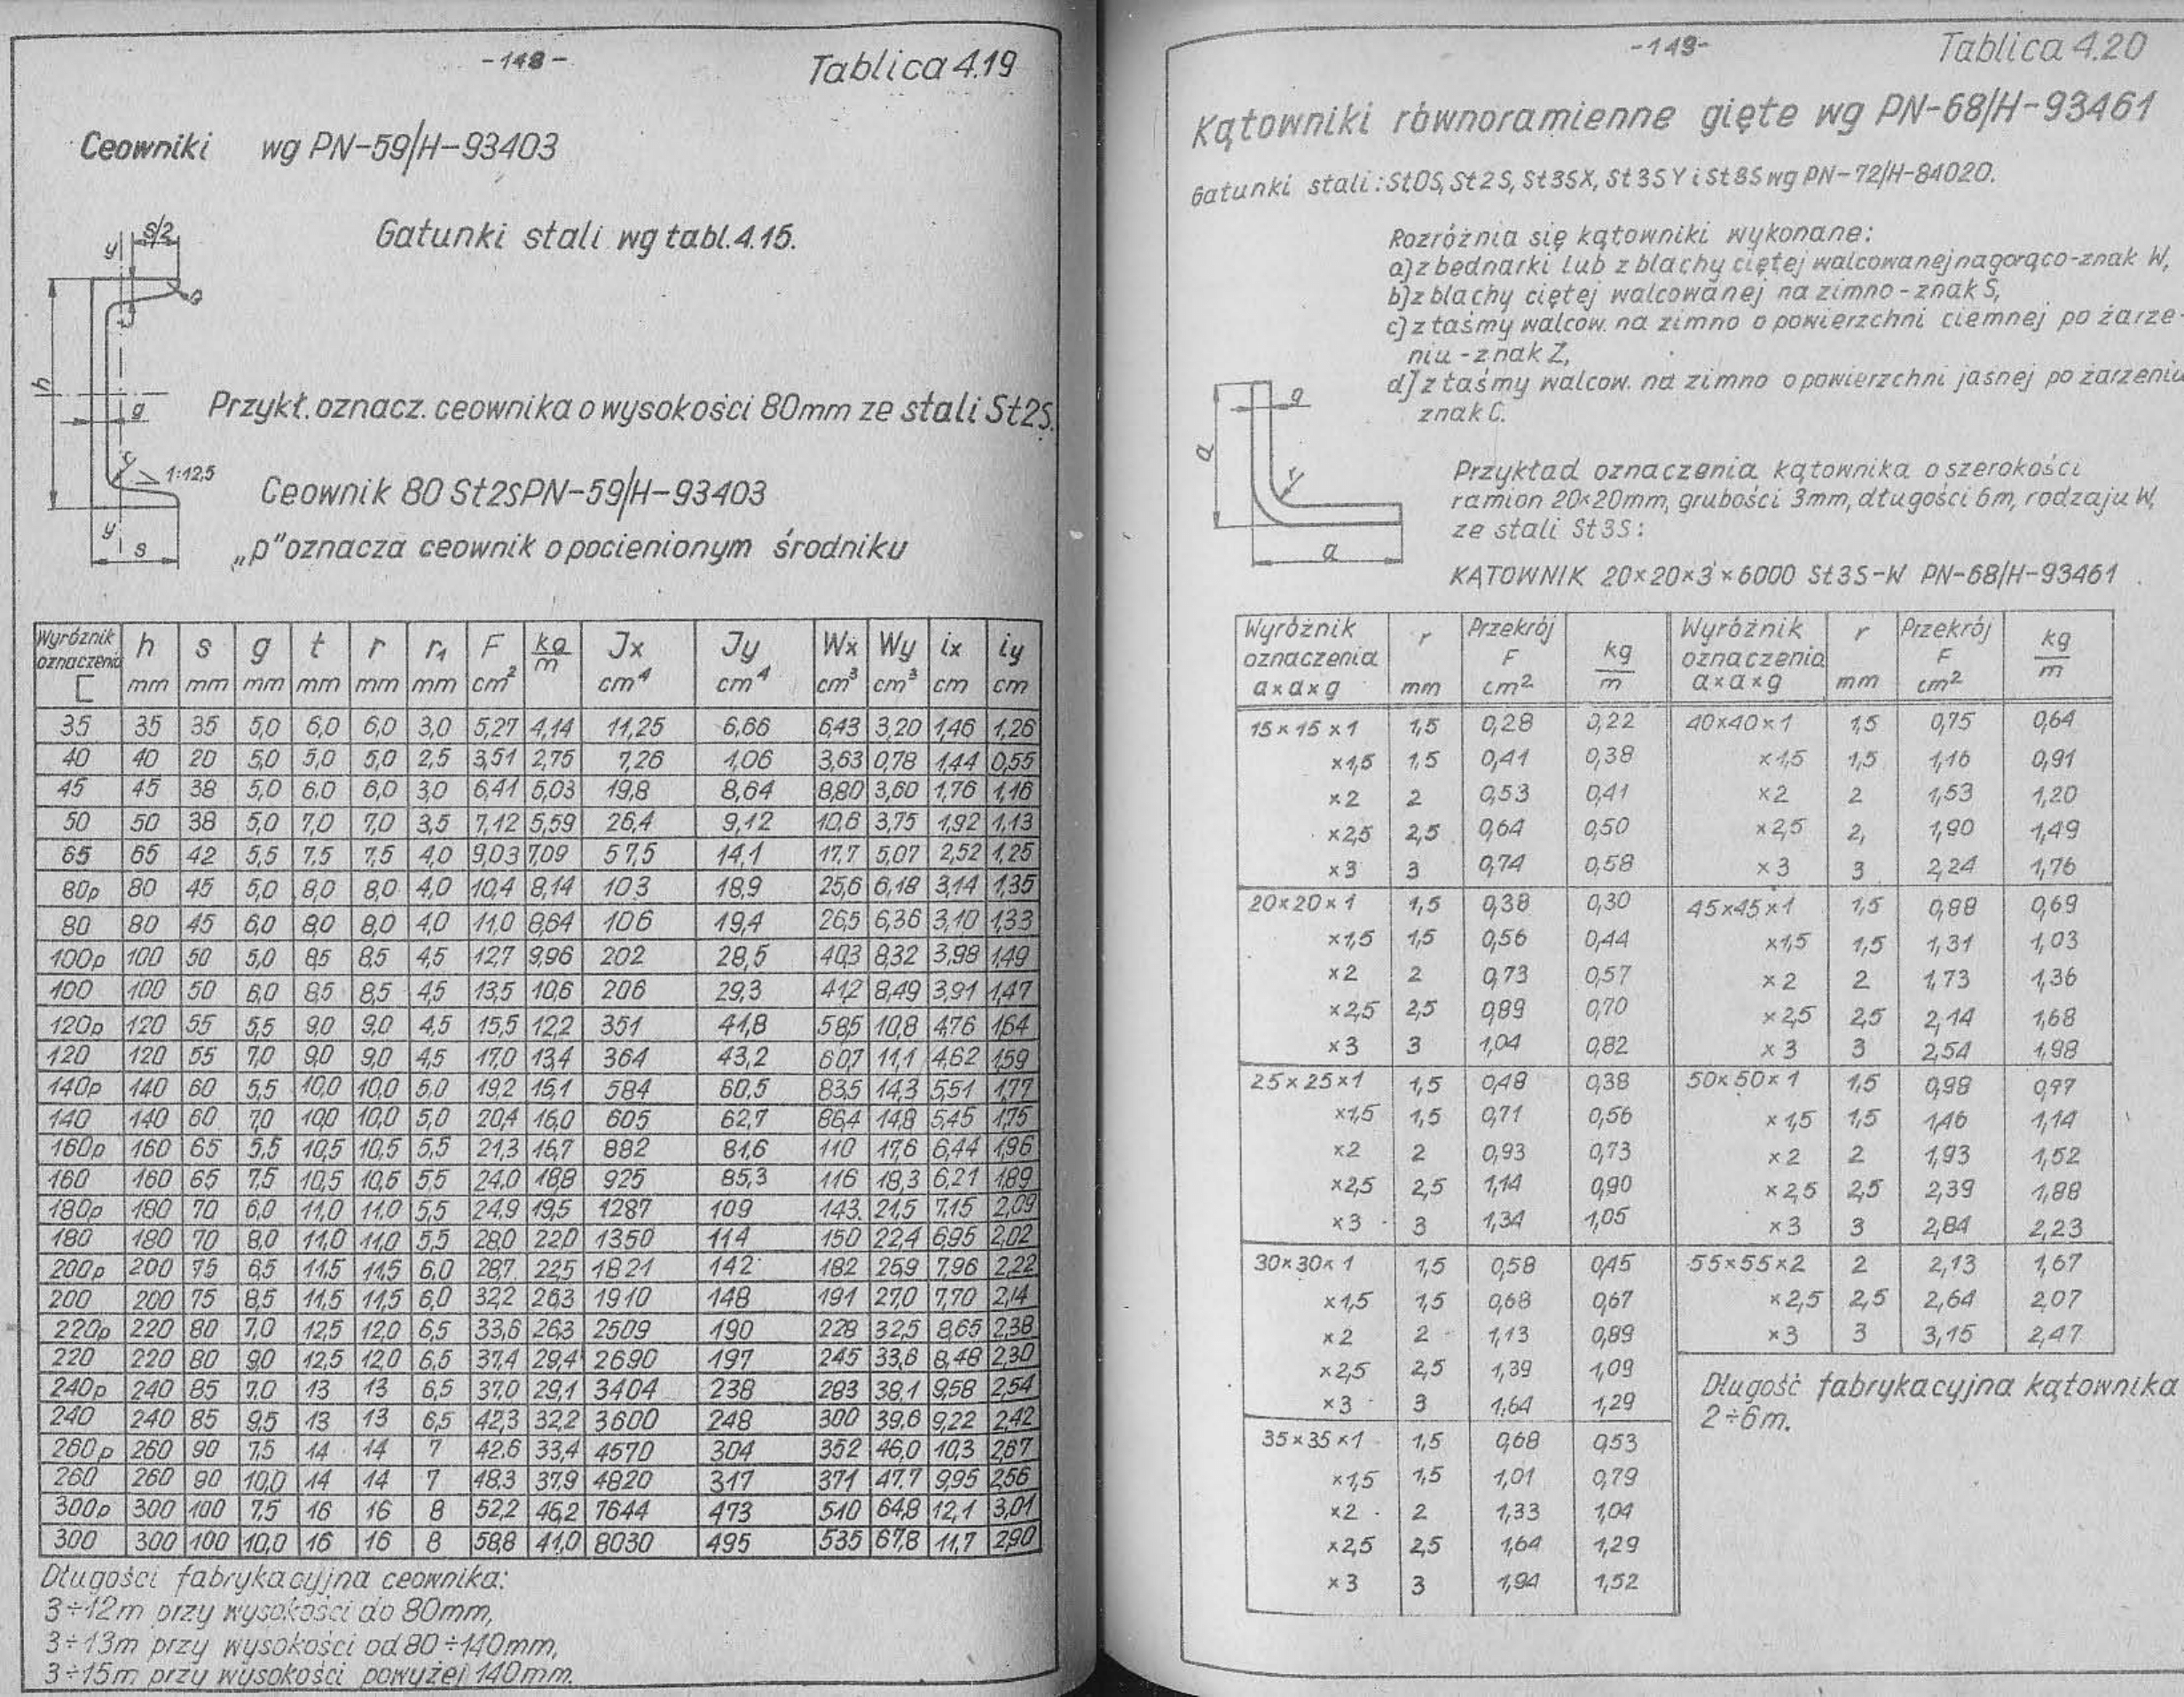 -148-
Tablica 4.19
Ceowniki wg PN-59/H-93403
Gatunki stali wg tabl. 4.15.
y s/2
h
g
Przykł. oznacz. ceownika o wysokości 80mm ze stali St2S.
1:12,5
Ceownik 80 St2S PN-59/H-93403
y s
„p" oznacza ceownik o pocienionym środniku
Wyróżnik oznaczenia [ h mm s mm g mm t mm r mm r1 mm F cm² kg/m Jx cm⁴ Jy cm⁴ Wx cm³ Wy cm³ ix cm iy cm
35 35 35 5,0 6,0 6,0 3,0 5,27 4,14 11,25 6,66 6,43 3,20 1,46 1,26
40 40 20 5,0 5,0 5,0 2,5 3,51 2,75 7,26 1,06 3,63 0,78 1,44 0,55
45 45 38 5,0 6,0 6,0 3,0 6,41 5,03 19,8 8,64 8,80 3,60 1,76 1,16
50 50 38 5,0 7,0 7,0 3,5 7,12 5,59 26,4 9,12 10,6 3,75 1,92 1,13
65 65 42 5,5 7,5 7,5 4,0 9,03 7,09 57,5 14,1 17,7 5,07 2,52 1,25
80p 80 45 5,0 8,0 8,0 4,0 10,4 8,14 103 18,9 25,6 6,18 3,14 1,35
80 80 45 6,0 8,0 8,0 4,0 11,0 8,64 106 19,4 26,5 6,36 3,10 1,33
100p 100 50 5,0 8,5 8,5 4,5 12,7 9,96 202 28,5 40,3 8,32 3,98 1,49
100 100 50 6,0 8,5 8,5 4,5 13,5 10,6 206 29,3 41,2 8,49 3,91 1,47
120p 120 55 5,5 9,0 9,0 4,5 15,5 12,2 351 41,8 58,5 10,8 4,76 1,64
120 120 55 7,0 9,0 9,0 4,5 17,0 13,4 364 43,2 60,7 11,1 4,62 1,59
140p 140 60 5,5 10,0 10,0 5,0 19,2 15,1 584 60,5 83,5 14,3 5,51 1,77
140 140 60 7,0 10,0 10,0 5,0 20,4 16,0 605 62,7 86,4 14,8 5,45 1,75
160p 160 65 5,5 10,5 10,5 5,5 21,3 16,7 882 81,6 110 17,6 6,44 1,96
160 160 65 7,5 10,5 10,5 5,5 24,0 18,8 925 85,3 116 18,3 6,21 1,89
180p 180 70 6,0 11,0 11,0 5,5 24,9 19,5 1287 109 143 21,5 7,15 2,09
180 180 70 8,0 11,0 11,0 5,5 28,0 22,0 1350 114 150 22,4 6,95 2,02
200p 200 75 6,5 11,5 11,5 6,0 28,7 22,5 1821 142 182 25,9 7,96 2,22
200 200 75 8,5 11,5 11,5 6,0 32,2 26,3 1910 148 191 27,0 7,70 2,14
220p 220 80 7,0 12,5 12,0 6,5 33,6 26,3 2509 190 228 32,5 8,65 2,38
220 220 80 9,0 12,5 12,0 6,5 37,4 29,4 2690 197 245 33,6 8,48 2,30
240p 240 85 7,0 13 13 6,5 37,0 29,1 3404 238 283 38,1 9,58 2,54
240 240 85 9,5 13 13 6,5 42,3 32,2 3600 248 300 39,6 9,22 2,42
260p 260 90 7,5 14 14 7 42,6 33,4 4570 304 352 46,0 10,3 2,67
260 260 90 10,0 14 14 7 48,3 37,9 4820 317 371 47,7 9,95 2,56
300p 300 100 7,5 16 16 8 52,2 46,2 7644 473 510 64,8 12,1 3,01
300 300 100 10,0 16 16 8 58,8 41,0 8030 495 535 67,8 11,7 2,90
Długości fabrykacyjna ceownika:
3÷12m przy wysokości do 80mm,
3÷13m przy wysokości od 80÷140mm,
3÷15m przy wysokości powyżej 140mm.
-149-
Tablica 4.20
Kątowniki równoramienne gięte wg PN-68/H-93461
Gatunki stali: St0S, St2S, St3SX, St3SY i St3S wg PN-72/H-84020.
Rozróżnia się kątowniki wykonane:
a) z bednarki lub z blachy ciętej walcowanej na gorąco-znak W,
b) z blachy ciętej walcowanej na zimno - znak S,
c) z taśmy walcow. na zimno o powierzchni ciemnej po żarze-
niu - znak Z,
d) z taśmy walcow. na zimno o powierzchni jasnej po żarzeniu
znak C.
g
a
r
a
Przykład oznaczenia kątownika o szerokości
ramion 20×20mm, grubości 3mm, długości 6m, rodzaju W,
ze stali St3S:
KĄTOWNIK 20×20×3×6000 St3S-W PN-68/H-93461
Wyróżnik oznaczenia a×a×g r mm Przekrój F cm² kg/m Wyróżnik oznaczenia a×a×g r mm Przekrój F cm² kg/m
15×15×1 1,5 0,28 0,22 40×40×1 1,5 0,75 0,64
×1,5 1,5 0,41 0,38 ×1,5 1,5 1,16 0,91
×2 2 0,53 0,41 ×2 2 1,53 1,20
×2,5 2,5 0,64 0,50 ×2,5 2, 1,90 1,49
×3 3 0,74 0,58 ×3 3 2,24 1,76
20×20×1 1,5 0,38 0,30 45×45×1 1,5 0,88 0,69
×1,5 1,5 0,56 0,44 ×1,5 1,5 1,31 1,03
×2 2 0,73 0,57 ×2 2 1,73 1,36
×2,5 2,5 0,89 0,70 ×2,5 2,5 2,14 1,68
×3 3 1,04 0,82 ×3 3 2,54 1,98
25×25×1 1,5 0,48 0,38 50×50×1 1,5 0,98 0,77
×1,5 1,5 0,71 0,56 ×1,5 1,5 1,46 1,14
×2 2 0,93 0,73 ×2 2 1,93 1,52
×2,5 2,5 1,14 0,90 ×2,5 2,5 2,39 1,88
×3 3 1,34 1,05 ×3 3 2,84 2,23
30×30×1 1,5 0,58 0,45 55×55×2 2 2,13 1,67
×1,5 1,5 0,68 0,67 ×2,5 2,5 2,64 2,07
×2 2 1,13 0,89 ×3 3 3,15 2,47
×2,5 2,5 1,39 1,09
×3 3 1,64 1,29
35×35×1 1,5 0,68 0,53
×1,5 1,5 1,01 0,79
×2 2 1,33 1,04
×2,5 2,5 1,64 1,29
×3 3 1,94 1,52
Długość fabrykacyjna kątownika
2÷6m.